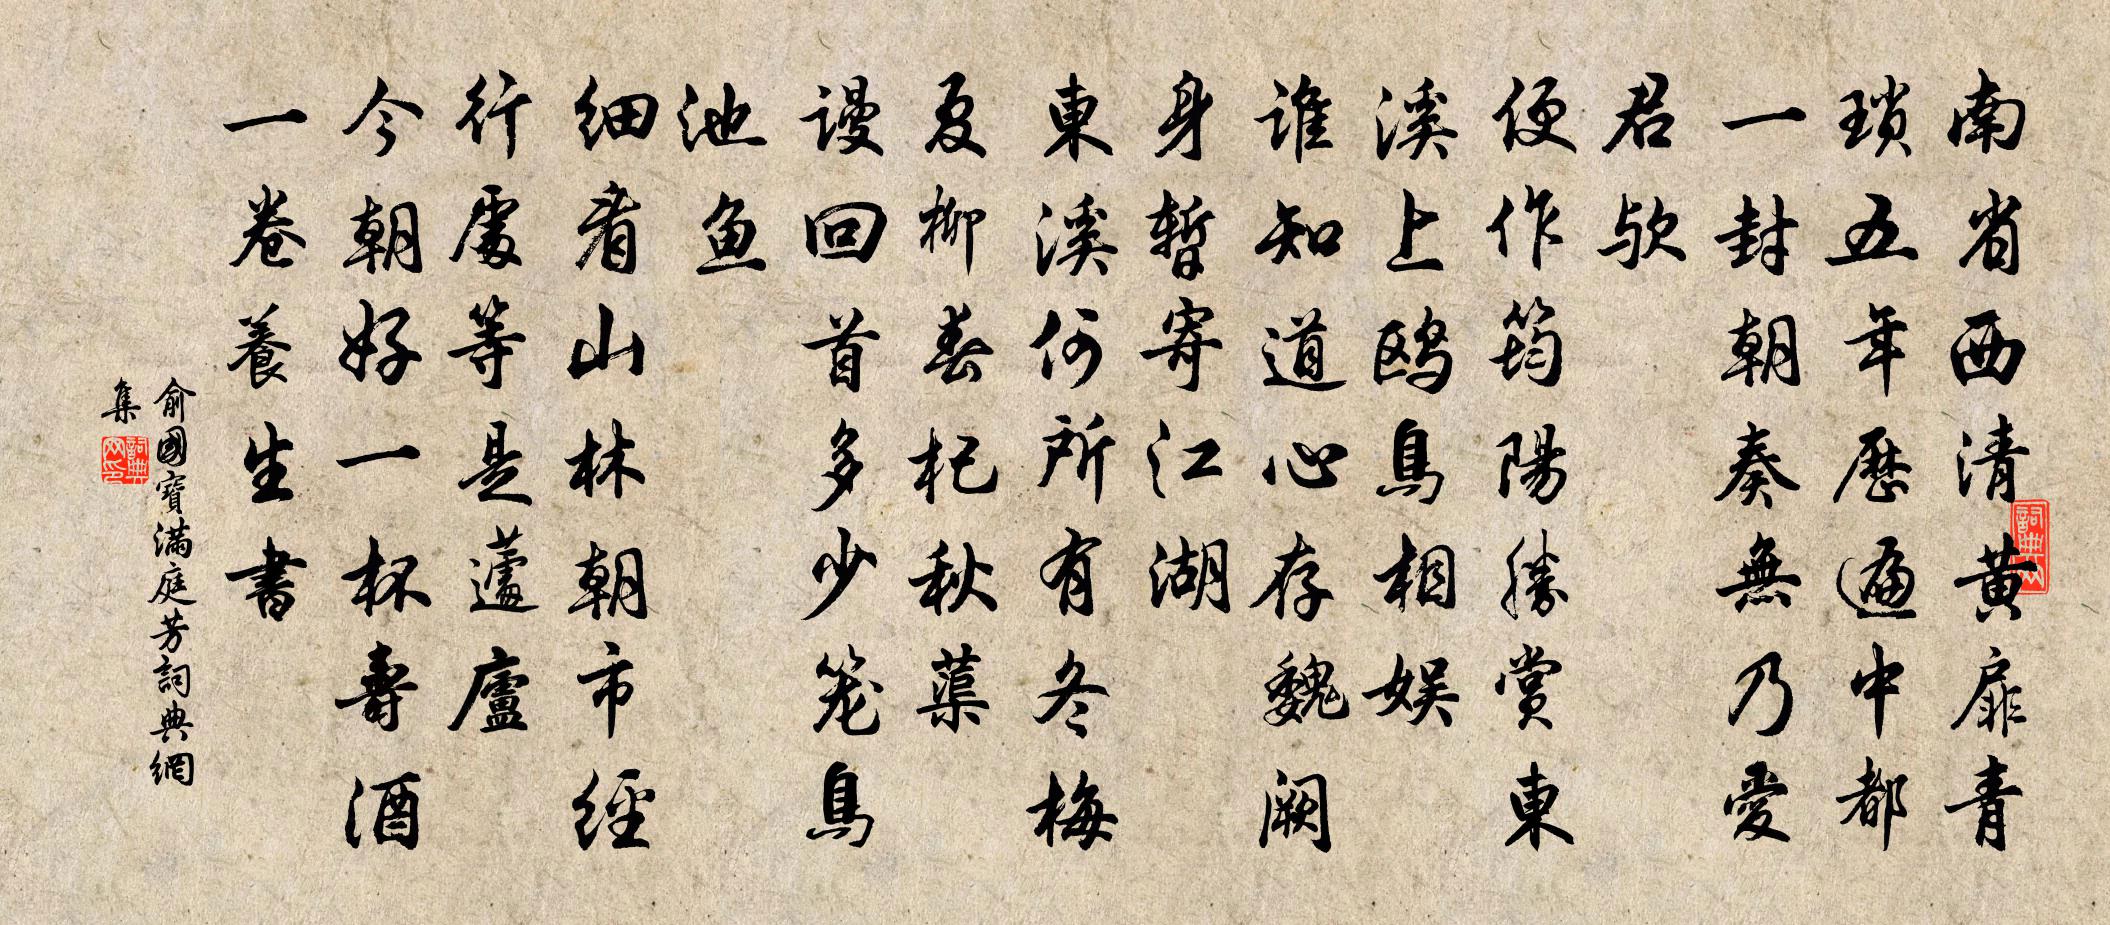 南省西清黄扉青
瑣五年歷遍中都
一封朝奏無乃愛
君歟
便作筠陽勝賞東
溪上鷗鳥相娛
誰知道心存魏闕
身暫寄江湖
東溪何所有冬梅
夏柳春杞秋蕖
謾回首多少籠鳥
池魚
細看山林朝市經
行處等是蘧廬
今朝好一杯壽酒
一卷養生書
俞國寶滿庭芳詞典網
集
詞典網
詞典網印